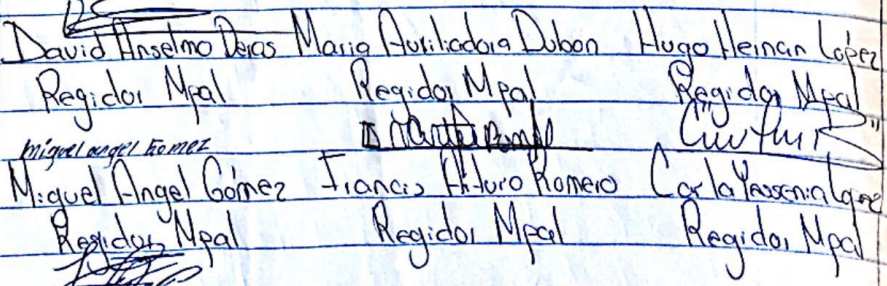 David Anselmo Deras Maria Auxiliadora Dubon Hugo Hernan López
Regidor Mpal Regidor Mpal Regidor Mpal
Miguel angel Gomez
Miguel Angel Gómez Francis Arturo Romero Carla Yessenia Lopez
Regidor Mpal Regidor Mpal Regidor Mpal